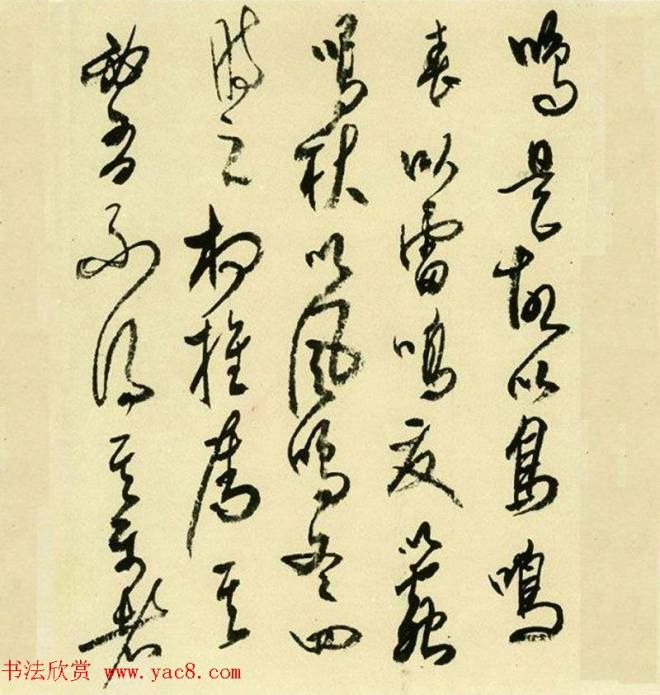 鳴是故以鳥鳴
春以雷鳴夏以蟲
鳴秋以風鳴冬四
時之相推奪其
必有不得其平者
书法欣赏 www.yac8.com